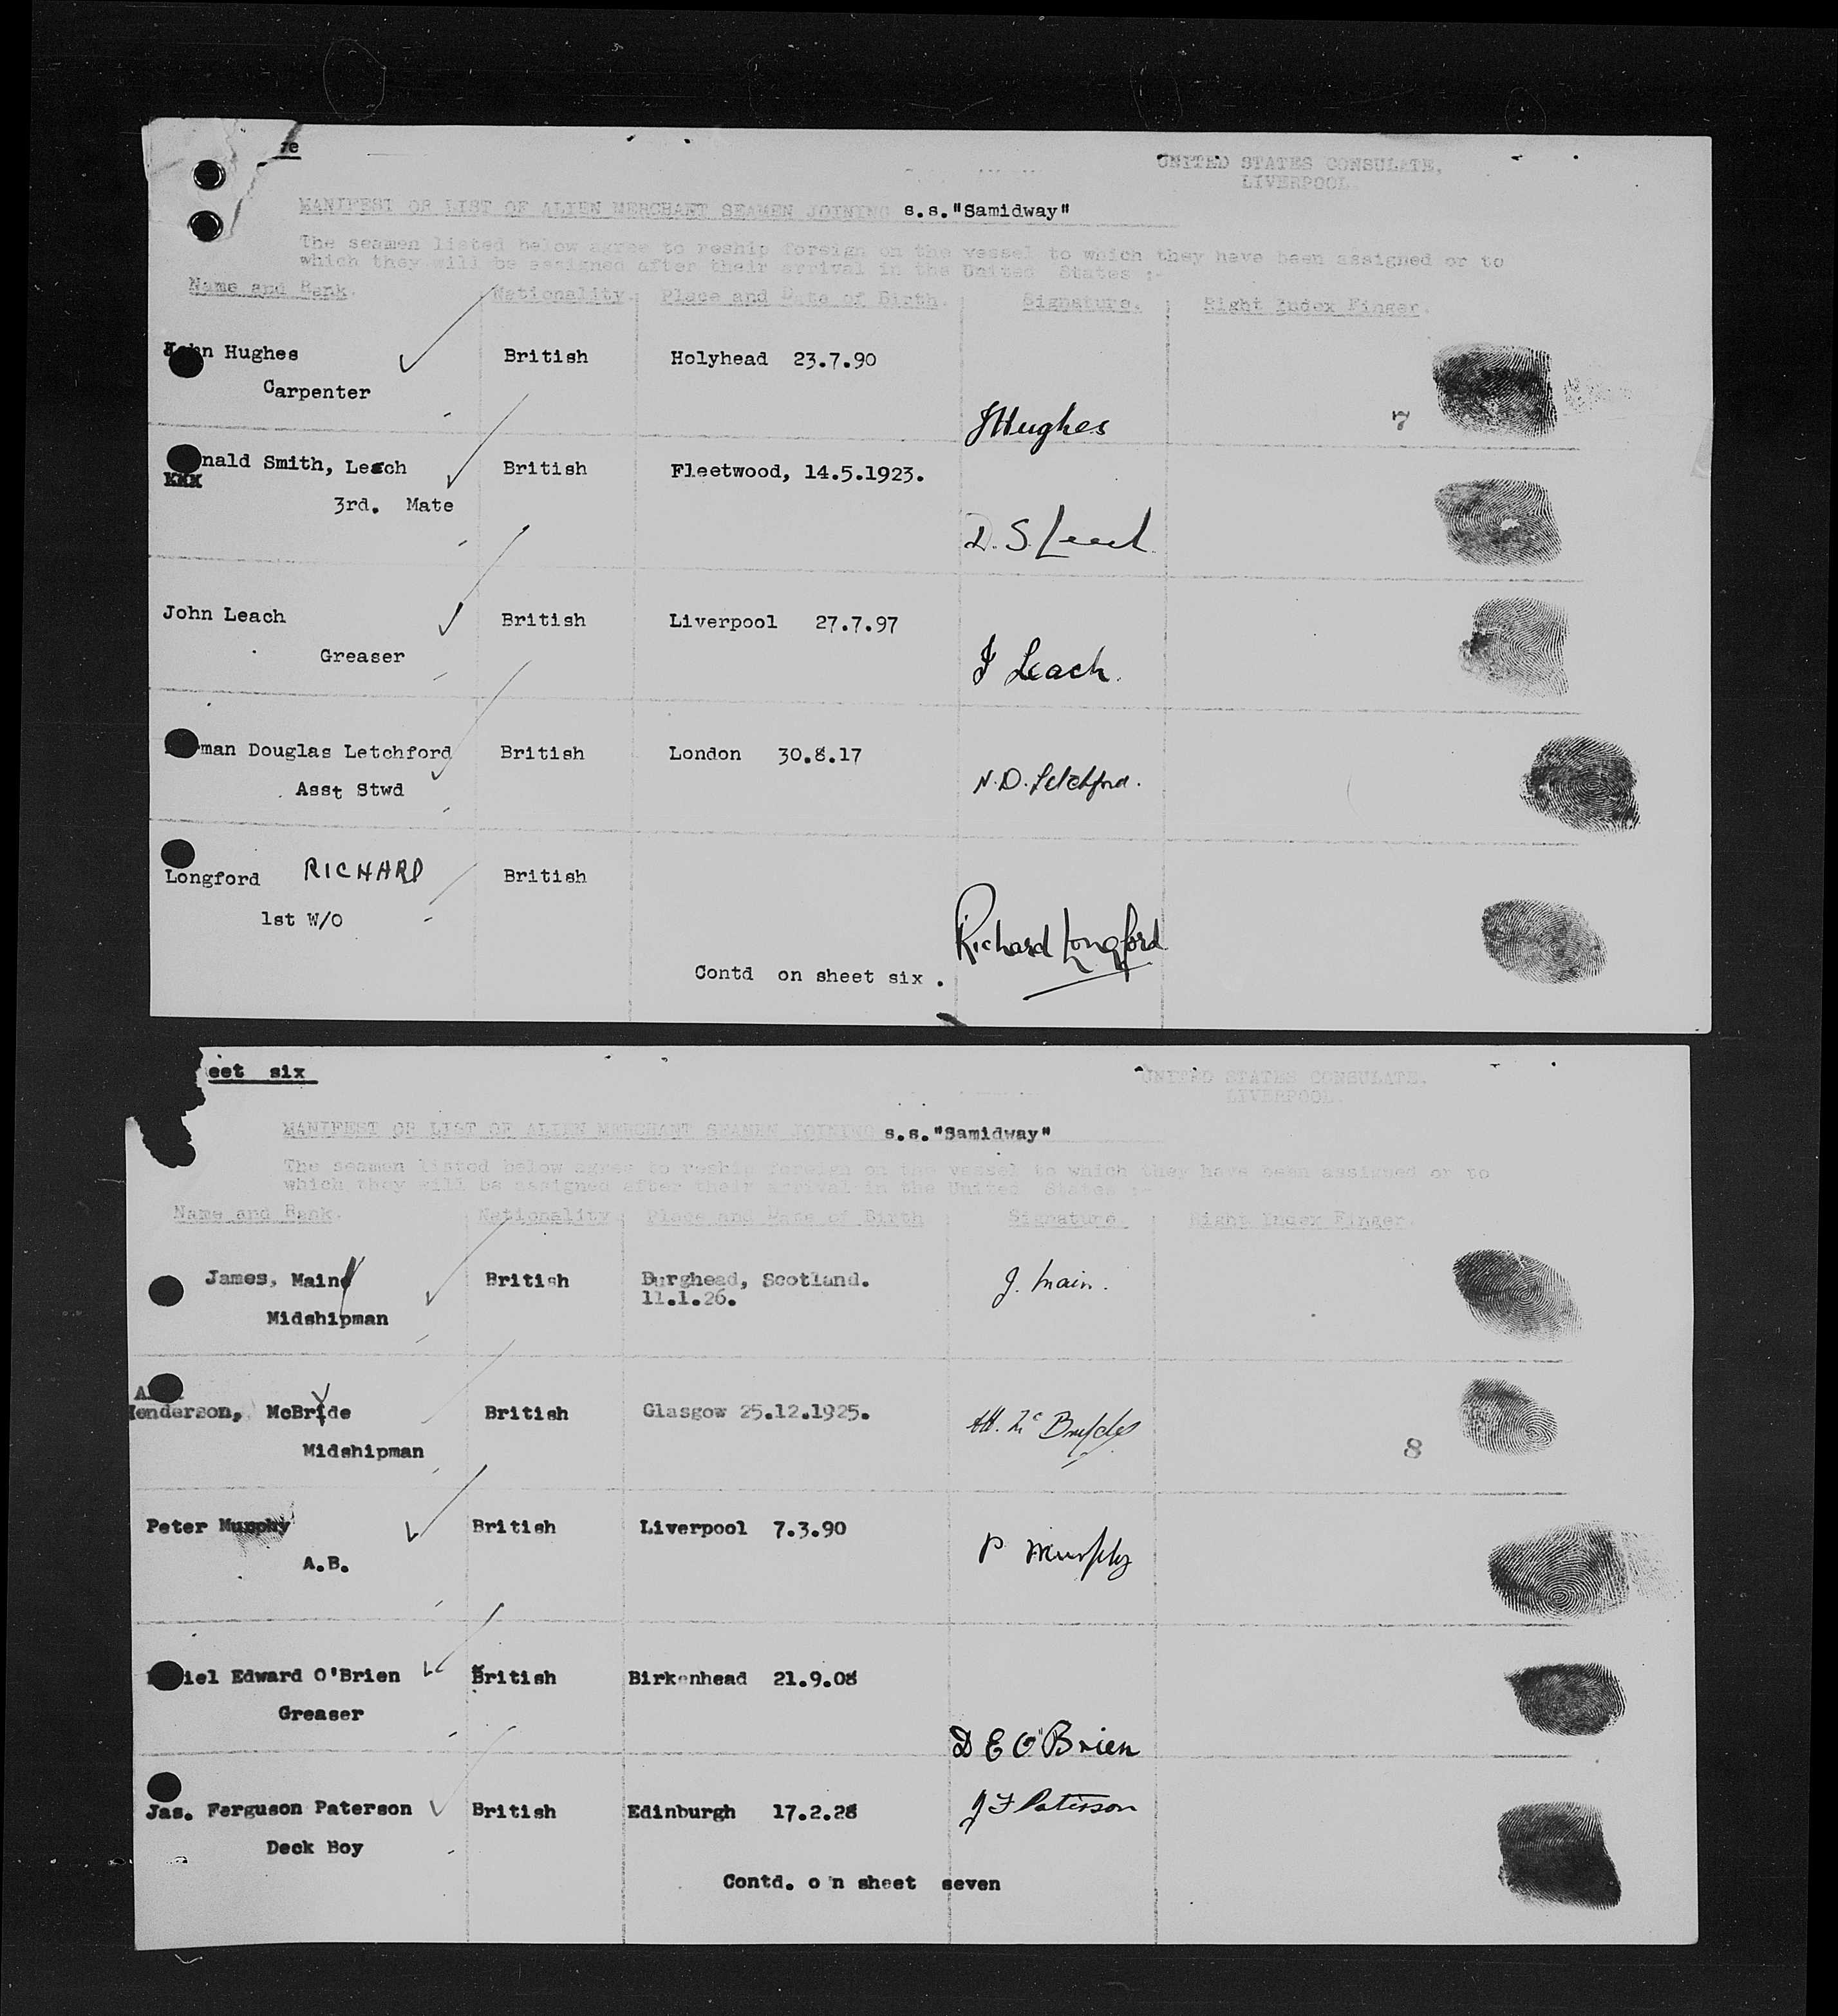 UNITED STATES CONSULATE,
LIVERPOOL.
MANIFEST OR LIST OF ALIEN MERCHANT SEAMEN JOINING s.s."Samidway"
The seamen listed below agree to reship foreign on the vessel to which they have been assigned or to
which they will be assigned after their arrival in the United States :-
Name and Rank. Nationality. Place and Date of Birth. Signature. Right Index Finger.
John Hughes British Holyhead 23.7.90
Carpenter
JHughes 7
nald Smith, Leach British Fleetwood, 14.5.1923.
3rd. Mate
D. S. Leach
John Leach British Liverpool 27.7.97
Greaser
J Leach.
man Douglas Letchford British London 30.8.17
Asst Stwd N.D. Letchford.
Longford RICHARD British
1st W/O
Richard Longford
Contd on sheet six .
eet six
UNITED STATES CONSULATE.
LIVERPOOL.
MANIFEST OR LIST OF ALIEN MERCHANT SEAMEN JOINING s.s."Samidway"
The seamen listed below agree to reship foreign on the vessel to which they have been assigned or to
which they will be assigned after their arrival in the United States :-
Name and Rank. Nationality. Place and Date of Birth Signature. Right Index Finger.
James, Main British Burghead, Scotland. J. Main.
11.1.26.
Midshipman
Henderson, McBryde British Glasgow 25.12.1925. McBryde
Midshipman 8
Peter Murphy British Liverpool 7.3.90 P Murphy
A.B.
iel Edward O'Brien British Birkenhead 21.9.08
Greaser
D E O'Brien
Jas. Ferguson Paterson British Edinburgh 17.2.28 J F Paterson
Deck Boy
Contd. o n sheet seven